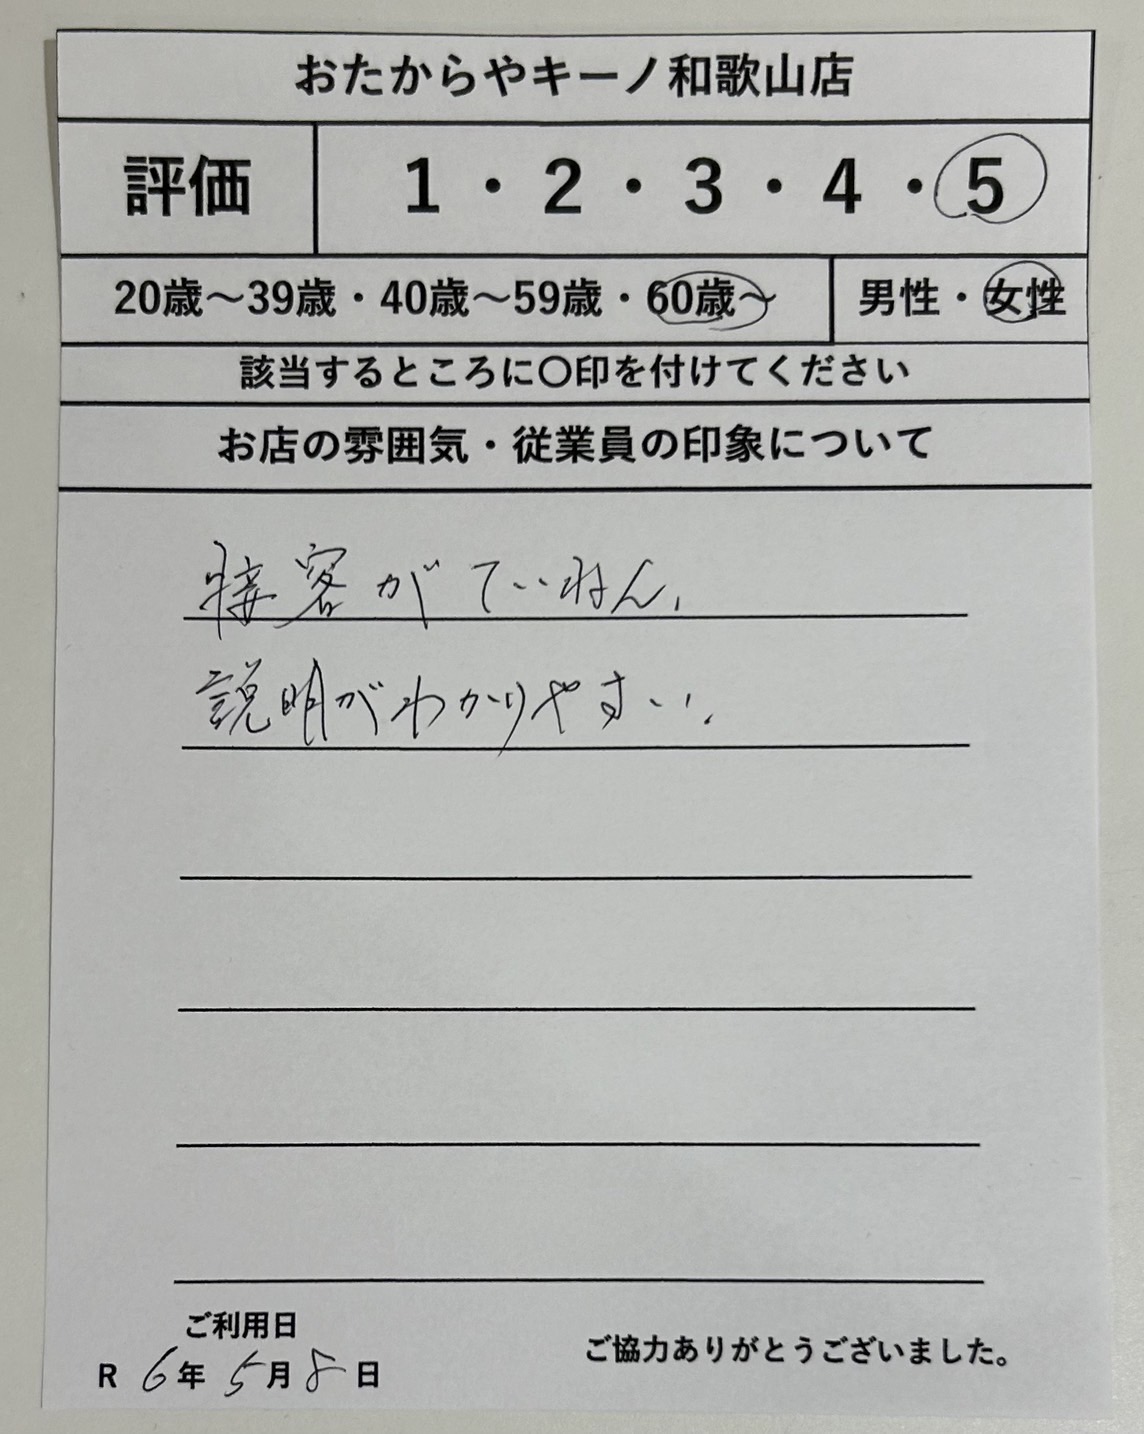 おたからやキーノ和歌山店
評価 1・2・3・4・5
20歳〜39歳・40歳〜59歳・60歳〜 男性・女性
該当するところに〇印を付けてください
お店の雰囲気・従業員の印象について
接客がていねん。
説明がわかりやすい。
ご利用日
R 6年 5月 8日
ご協力ありがとうございました。